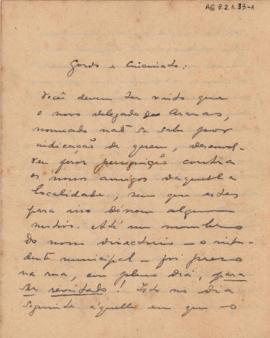 AG 8.2.1.33-1
Gordo e Cincinato:
Vocês devem ter visto que
o novo delegado de Araras,
nomeado não se sabe por
indicação de quem, desenvol-
veu feroz perseguição contra
os nossos amigos daquella
localidade, sem que estes
para isso dessem algum
motivo. Até um membro
do nosso directorio — o
municipal — foi preso
na rua, em pleno dia, para
ser revistado! Isto no dia
seguinte áquelle em que o